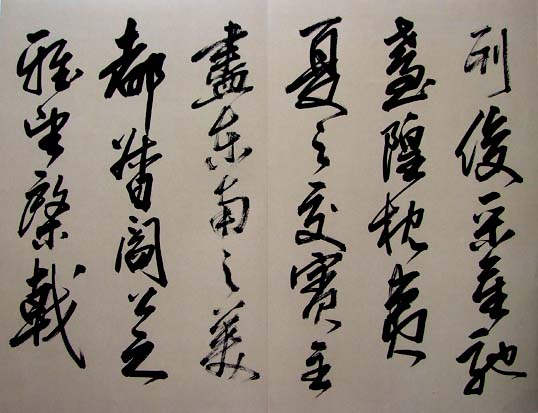 列俊采星馳
臺隍枕夷
夏之交賓主
盡東南之美
都督閻公之
雅望棨戟